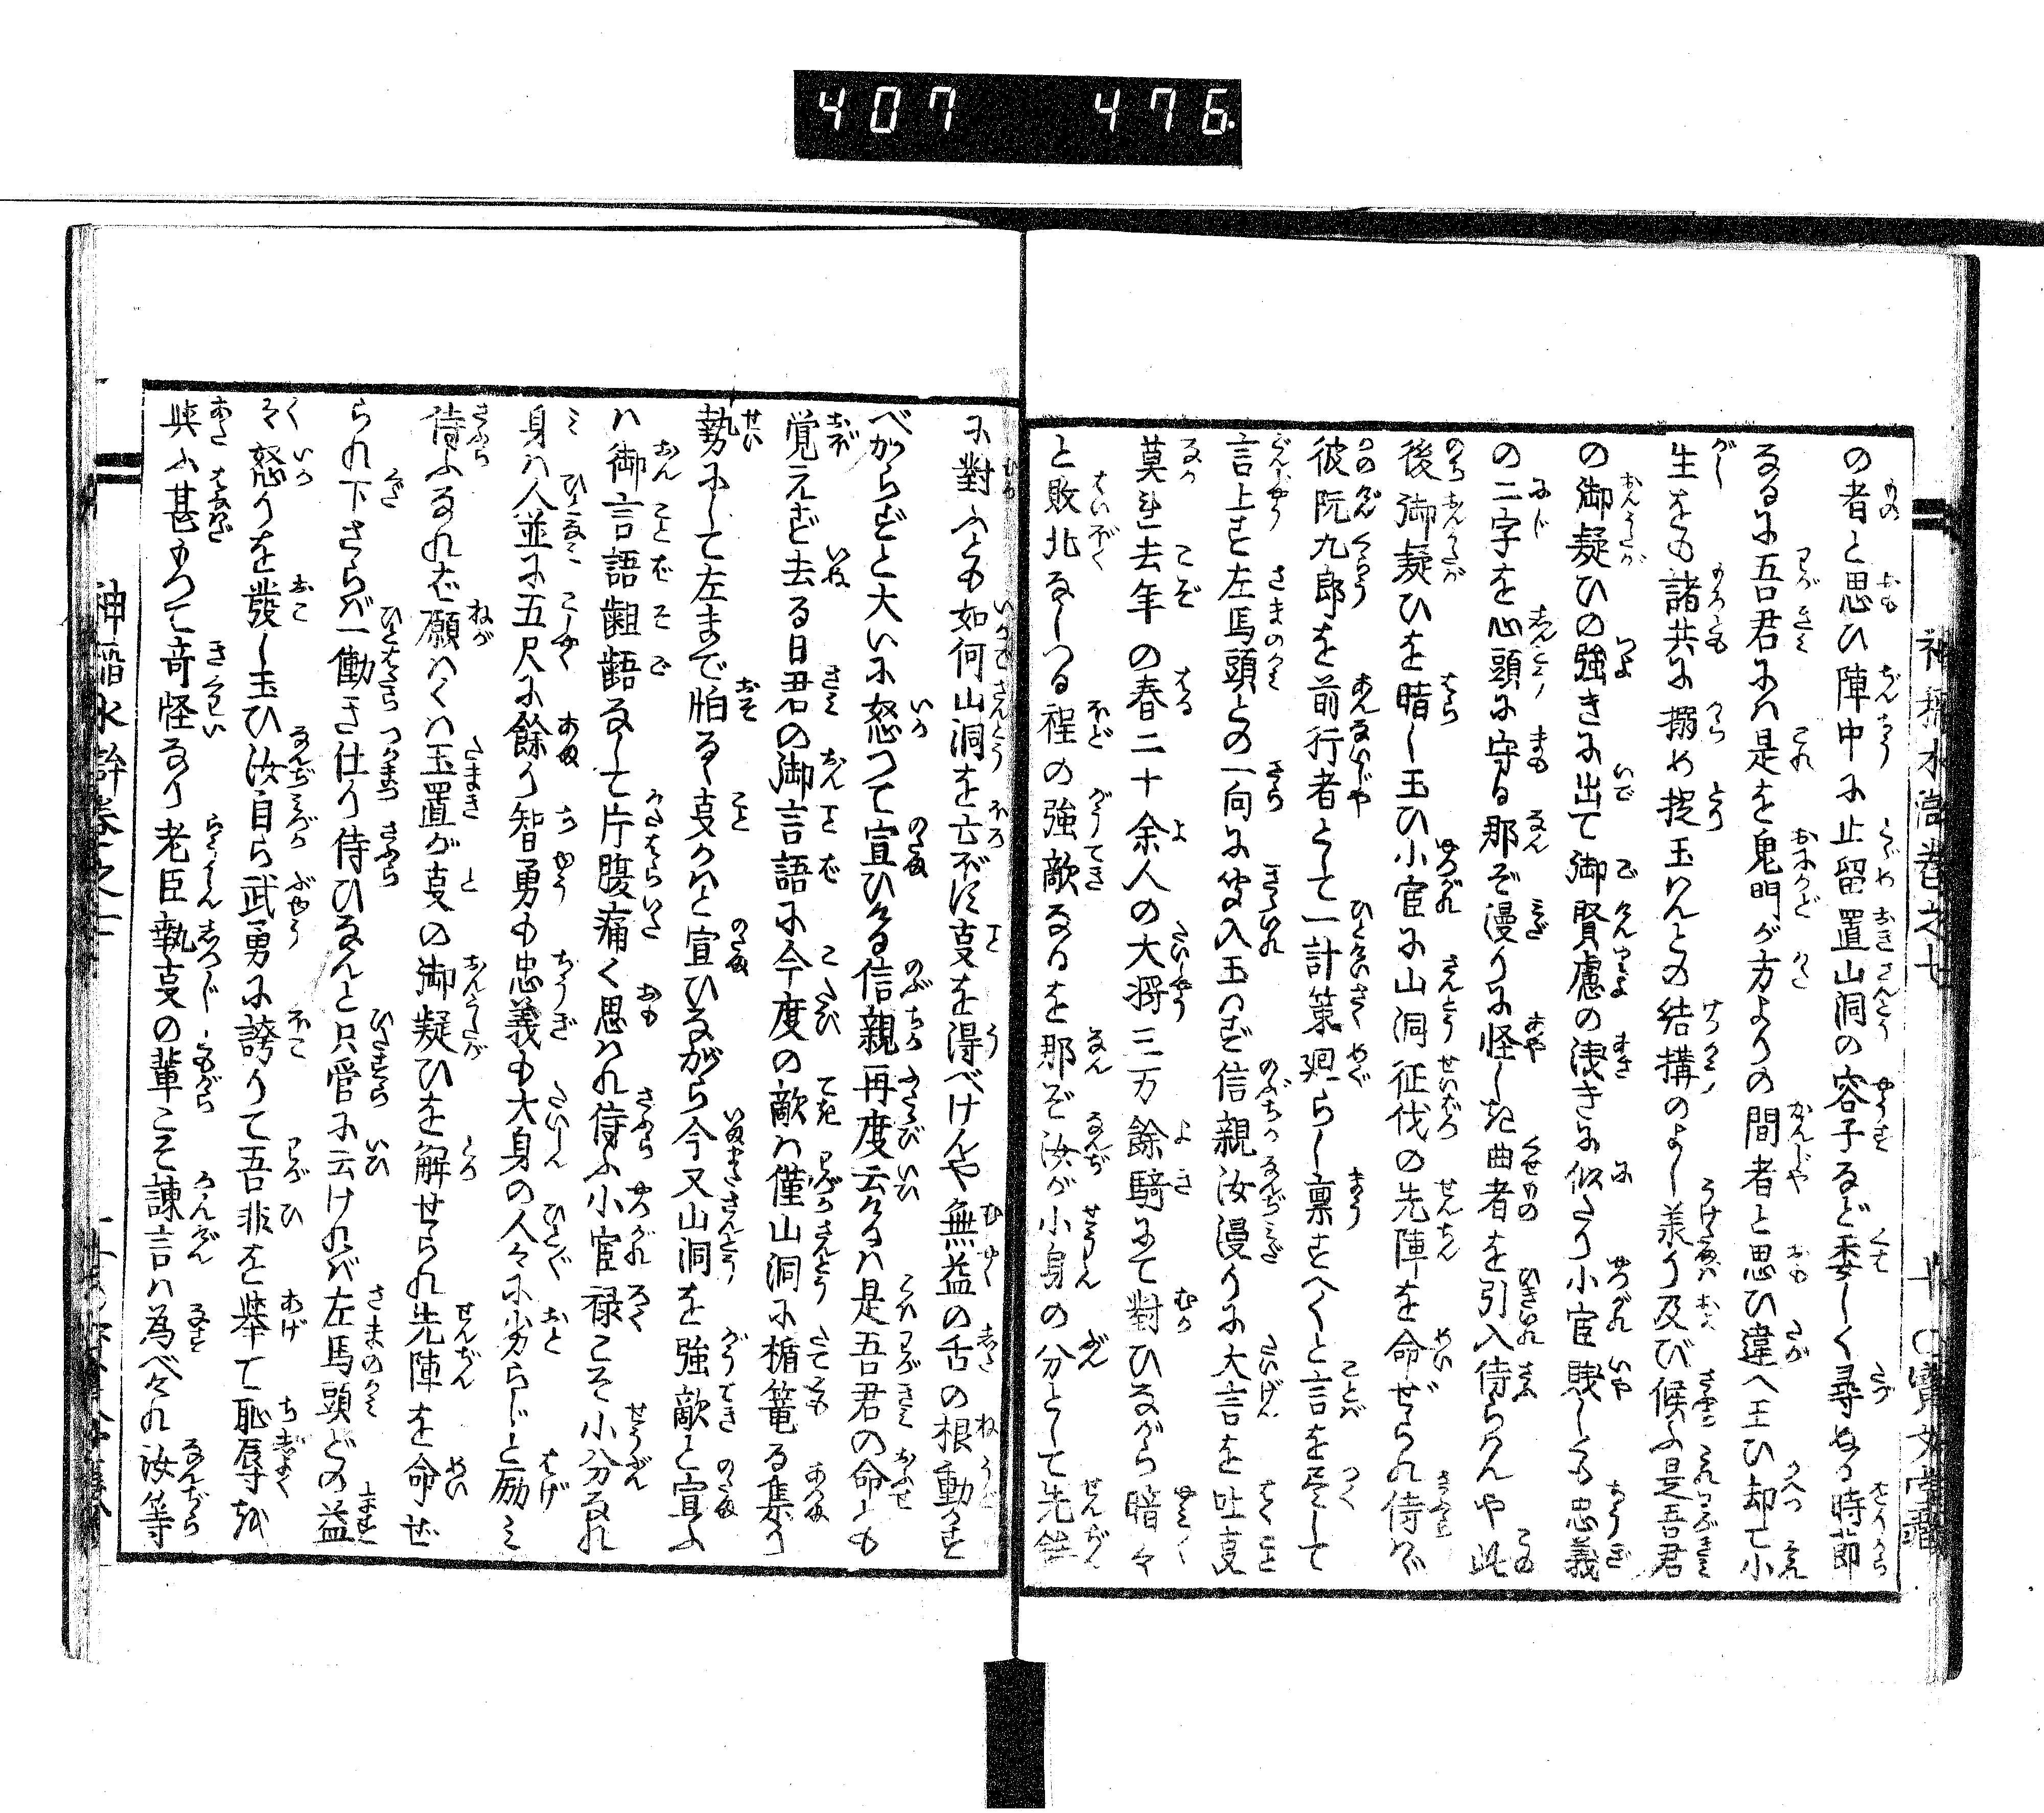 407 476
の者と思ひ陣中に止留置山洞の容子など委しく尋ぬる時節
なるに吾君には是を鬼門が方よりの間者と思ひ違へ玉ひ却て小
生をも諸共に搦め捉玉はんとの結構のよし義り及び候ふ是吾君
の御疑ひの強きに出て御賢慮の浅きに似たり小官賎しくも忠義
の二字を心頭に守る那ぞ漫りに怪しき曲者を引入侍らんや此
後御疑ひを晴し玉ひ小官に山洞征伐の先陣を命ぜられ侍はゞ
彼阮九郎を前行者として一計策廻らし稟すべくと言を尽して
言上す左馬頭との一向に笑入玉はず信親汝漫りに大言を吐事
莫連去年の春二十余人の大将三万餘騎にて對ひながら暗々
と敗北なしつる程の強敵なるを那ぞ汝が小身の分として先鋒
に對ふとも如何山洞を亡ぼす事を得べけんや無益の舌の根動かす
べからずと大いに怒つて宣ひける信親再度云けるは是吾君の命とも
覚えず去る日君の御言語に今度の敵は僅山洞に楯篭る集り
勢にして左まで怕るゝ事かはと宣ひながら今又山洞を強敵と宣ふ
は御言語齟齬なして片腹痛く思はれ侍ふ小官禄こそ小分なれ
身は人並に五尺に餘り智勇も忠義も大身の人々に劣らじと励み
侍ふなれば願はくは玉置が事の御疑ひを解せられ先陣を命ぜ
られ下さらば一働き仕り侍ひなんと只管に云ければ左馬頭どの益
々怒りを發し玉ひ汝自ら武勇に誇りて吾非を挙て恥辱を
與ふ甚もつて奇怪なり老臣執事の輩こそ諫言は為べけれ汝等
神稲水滸巻之七